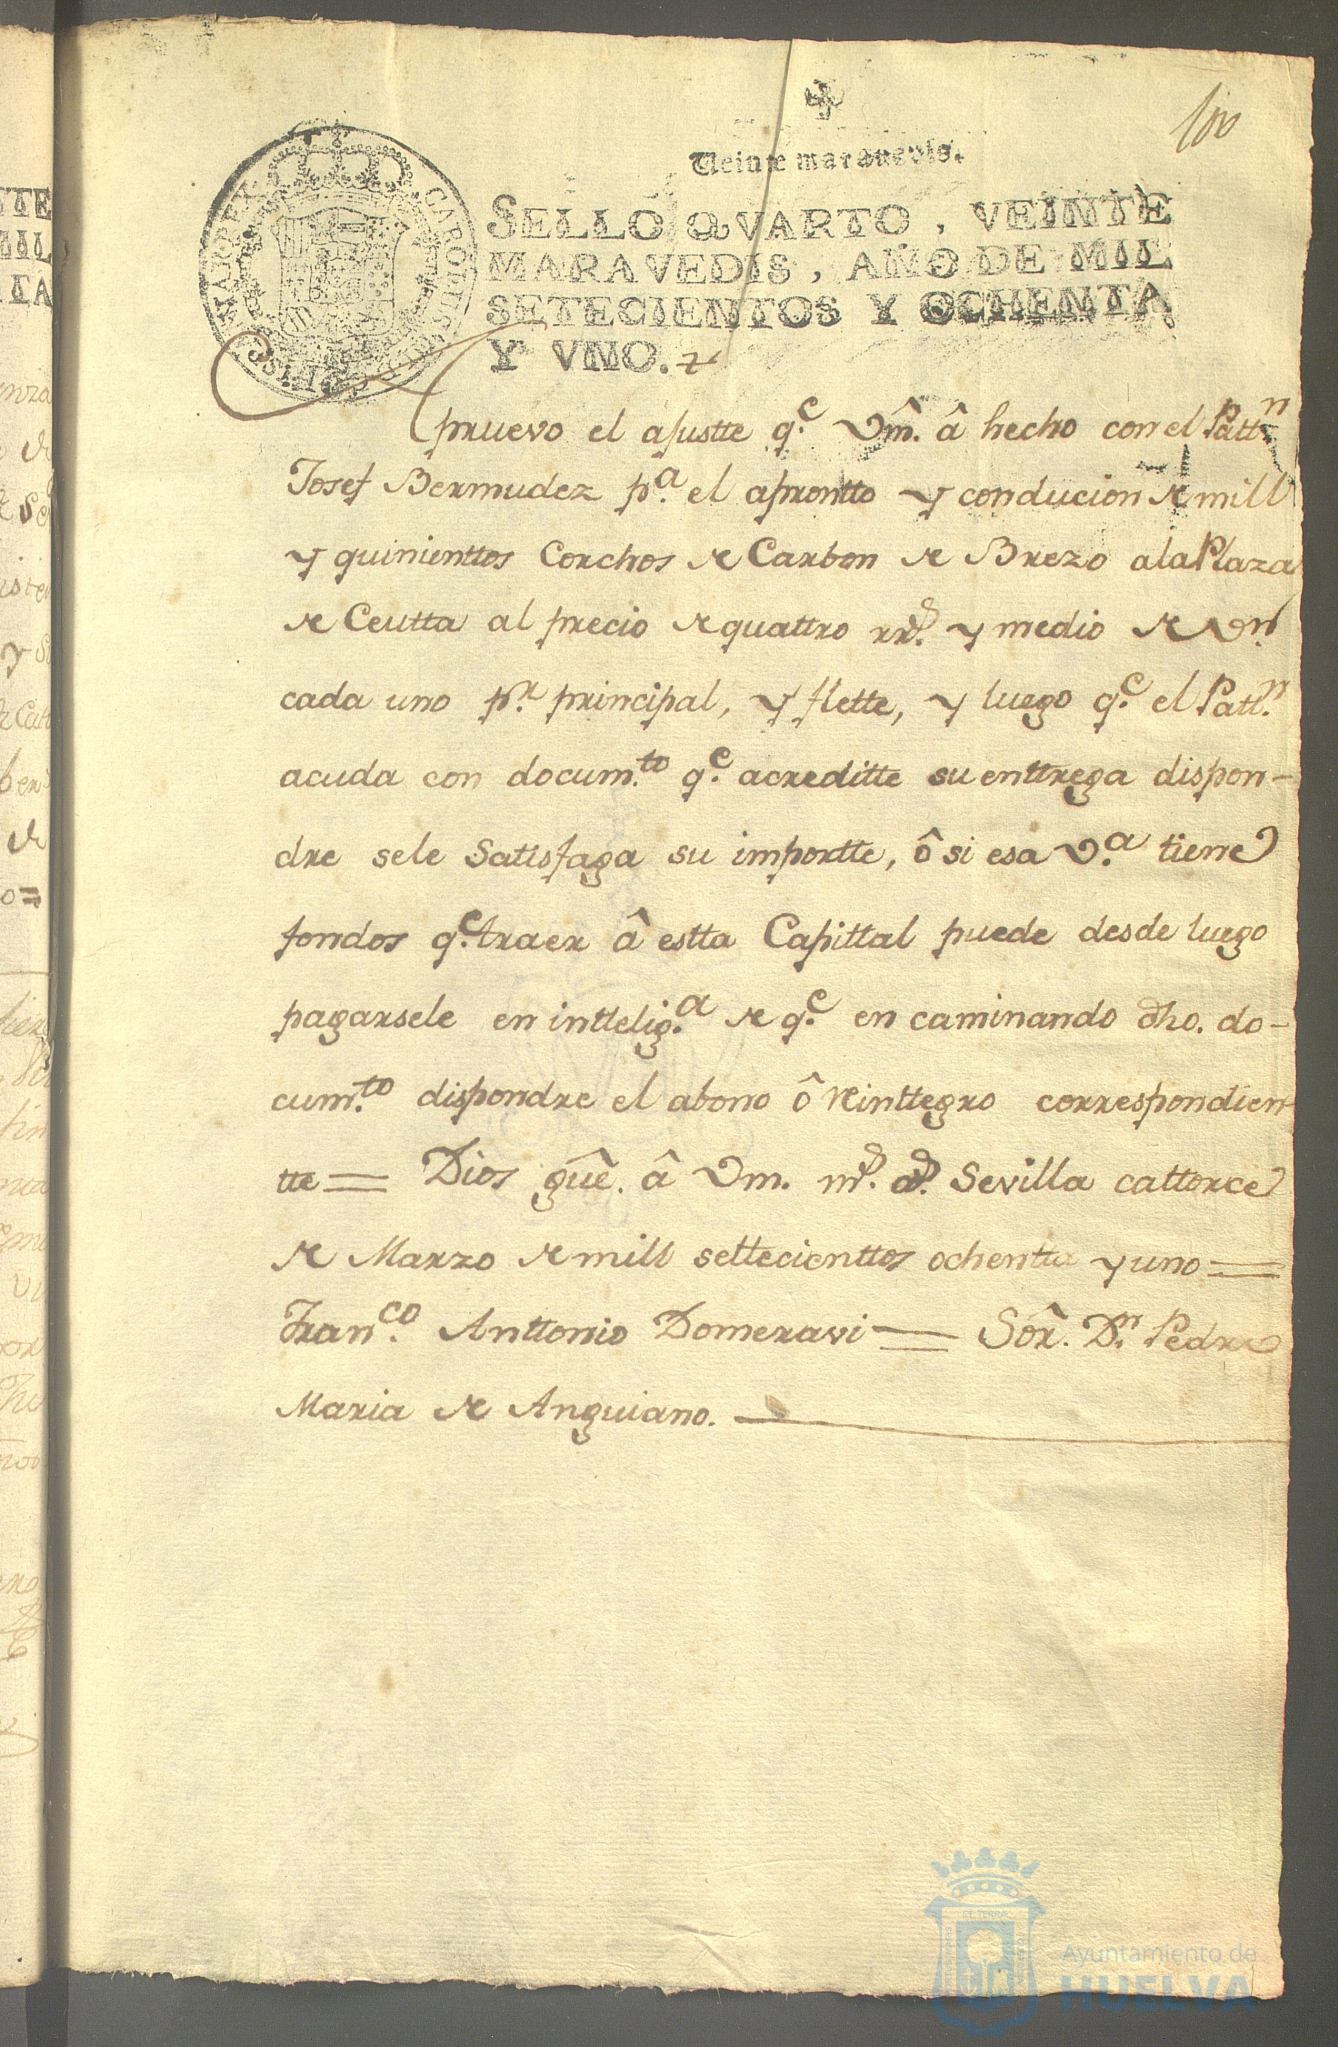 100
Veinte maravedis.
SELLO QVARTO, VEINTE
MARAVEDIS, AÑO DE MIL
SETECIENTOS Y OCHENTA
Y VNO.
Apruevo el ajustte q.e Vm̂. â hecho con el Patt.n
Josef Bermudez p.a el apronttto y conducion de mill
y quinienttos Corchos de Carbon de Brezo a la Plaza
de Ceutta al precio de quattro rr.s y medio de v.n
cada uno p.r principal, y flette, y luego q.e el Patt.n
acuda con docum.to q.e acreditte su enttrega dispon-
dre sele Satisfaga su importte, ô si esa V.a tiene
fondos q.e traer â estta Capittal puede desde luego
pagarsele en inttelig.a de q.e en caminando dho. do-
cum.to dispondre el abono ô Reinttegro correspondien-
tte = Dios gûe. â Vm. m.s a.s Sevilla cattorce
de Marzo de mill settecienttos ochentta y uno =
Fran.co Anttonio Domeravi = Sôr. D.n Pedro
Maria de Anguiano.
Ayuntamiento de
HUELVA